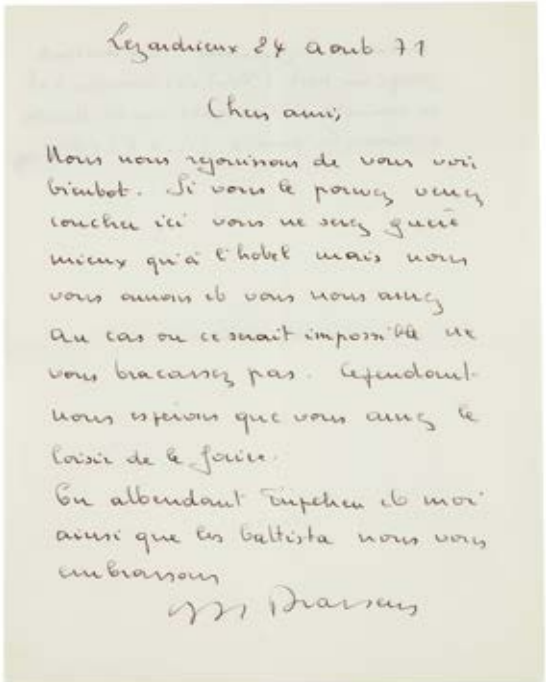 Lezardrieux 24 aout 71
Chers amis,
Nous nous rejouissons de vous voir
bientot. Si vous le pouvez venez
coucher ici vous ne serez guère
mieux qu'à l'hotel mais nous
vous aurons et vous nous aurez
Au cas ou ce serait impossible ne
vous tracassez pas. Cependant
nous esperons que vous aurez le
loisir de le faire.
En attendant Püpchen et moi
ainsi que les battista nous vous
embrassons
Brassens